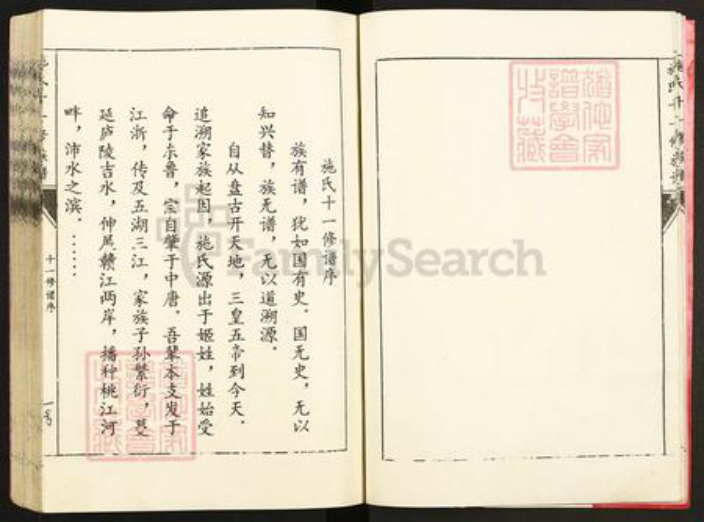 施氏十一修谱序
族有谱，犹如国有史。国无史，无以
知兴替，族无谱，无以道溯源。
自从盘古开天地，三皇五帝到今天。
追溯家族起因，施氏源出于姬姓，姓始受
命于东鲁，宗自肇于中唐。吾辈本支发于
江浙，传及五湖三江，家族子孙繁衍，蔓
延庐陵吉水，伸展赣江两岸，播种桃江河
畔，沛水之滨。……
十一修谱序
FamilySearch